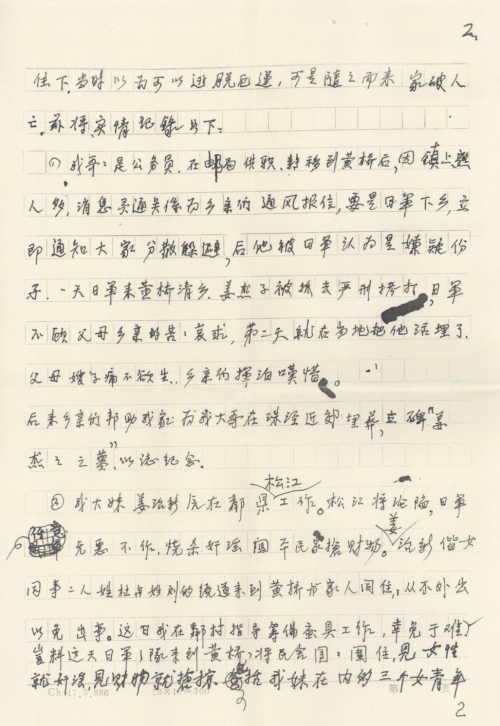 2.
住下.当时以为可以逃脱厄运,可是随之而来 家破人
亡.亦将实情纪录如下:
(1) 我哥:是公务员.在邮局供职.转移到黄桥后,因镇上熟
人多,消息灵通关系为乡亲们通风报信,要是日军下乡,立
即通知大家分散躲避,后他被日军认为是嫌疑份
子.一天日军来黄桥清乡.姜杰子被抓去严刑拷打,日军
不顾父母乡亲的苦:哀求,第二天就在当地把他活埋了.
父母嫂子痛不欲生.乡亲们挥泪叹惜.
后来乡亲们帮助我家为我大哥在珠泾近郊埋葬,立碑"姜
杰之之墓"以志纪念.
松江
② 我大妹姜治新原在邻县工作。松江将沦陷,日军
无恶不作,烧杀奸淫 平民家抢财物。姜治新偕女
同事二人姓杜与姓刘的绕道来到黄桥与家人同住,从不外出
以免出事。这日我在邻村指导筹备蚕具工作,幸免于难,
岂料这天日军1队来到黄桥,将民舍团:围住,见女性
就奸淫见财物就抢掠 我妹在内的三个女青年
2